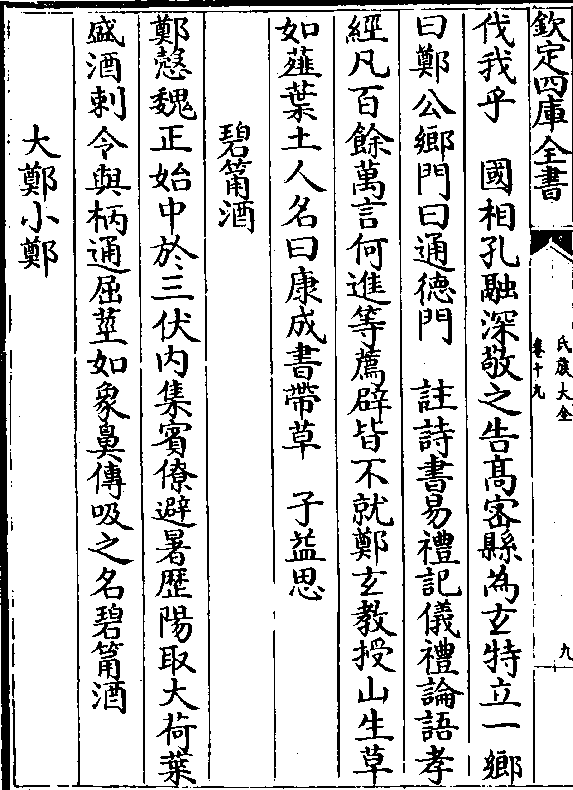 欽定四庫全書
氏族大全
卷十九
九
伐我乎　國相孔融深敬之告髙密縣為玄特立一鄉
曰鄭公鄉門曰通德門　註詩書易禮記儀禮論語孝
經凡百餘萬言何進等薦辟皆不就鄭玄教授山生草
如薤葉土人名曰康成書帶草　子益恩
碧筩酒
鄭慤魏正始中於三伏内集賓僚避暑歴陽取大荷葉
盛酒刺令與柄通屈莖如象鼻傳吸之名碧筩酒
大鄭小鄭